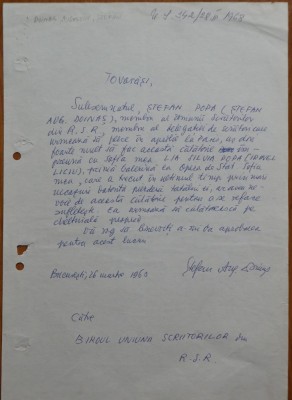 Tovarăși,
Subsemnatul, ȘTEFAN POPA (ȘTEFAN
AUG. DOINAȘ), membru al Uniunii Scriitorilor
din R.S.R., membru al delegației de scriitori care
urmează să plece în aprilie la Paris, aș dori
foarte mult să fac această călătorie îm-
preună cu soția mea, LIA SILVIA POPA (IRINEL
LICIU), primă balerină la Opera de Stat. Soția
mea, care a trecut în ultimul timp prin mari
necazuri datorită pierderii tatălui ei, are ne-
voie de această călătorie pentru a se reface
sufletește. Ea urmează să călătorească pe
cheltuială proprie.
Vă rog să binevoiți a-mi da aprobarea
pentru acest lucru.
București, 26 martie 1968
Ștefan Aug. Doinaș
Către
BIROUL UNIUNII SCRIITORILOR din
R.S.R.